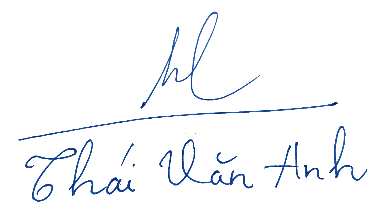 Thái Văn Anh